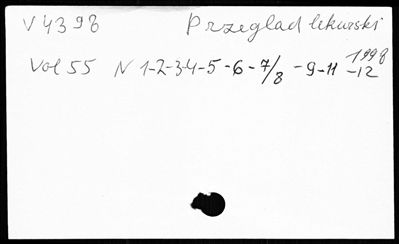 V 4398 Przeglad lekarski
Vol 55 N 1-2-3-4-5-6-7/8-9-11-12 1998